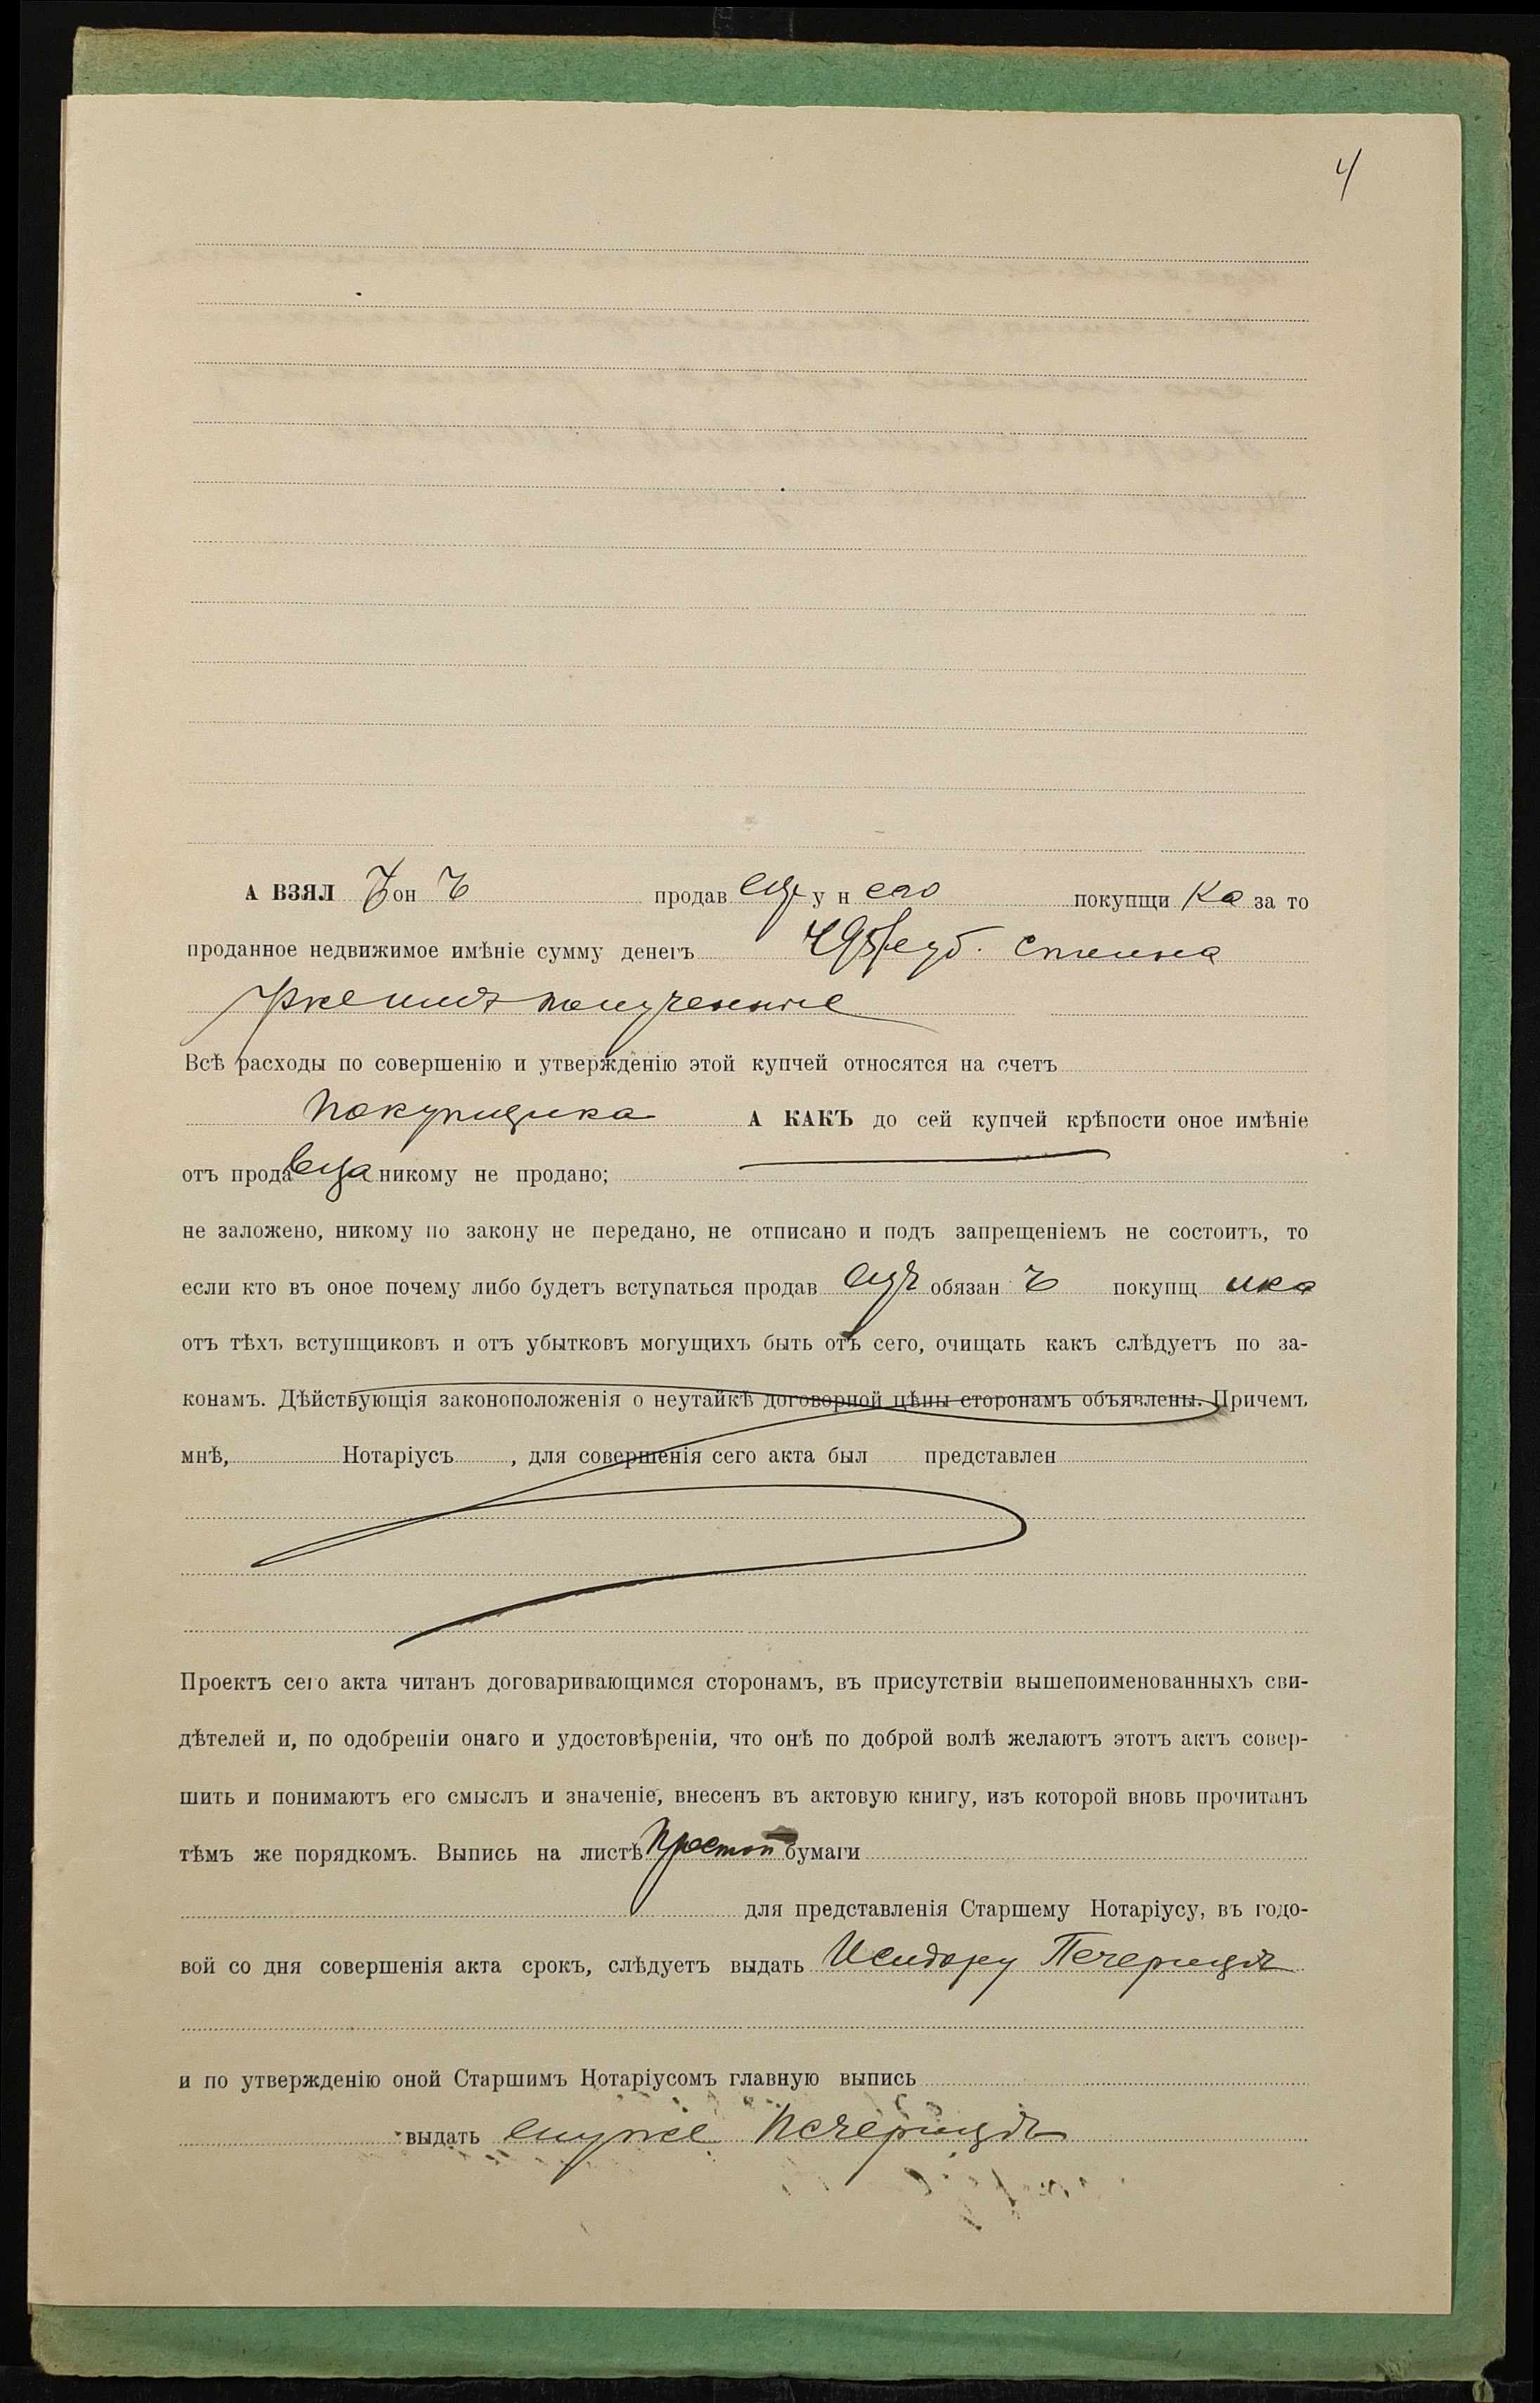 4
А ВЗЯЛ Ъ он Ъ продав ецъ у н его покупщи ка за то
проданное недвижимое имѣніе сумму денегъ руб. сполна
уже имъ полученные
Всѣ расходы по совершенію и утвержденію этой купчей относятся на счетъ
покупщика А КАКЪ до сей купчей крѣпости оное имѣніе
отъ прода вца никому не продано;
не заложено, никому по закону не передано, не отписано и подъ запрещеніемъ не состоитъ, то
если кто въ оное почему либо будетъ вступаться продав ецъ обязан ъ покупщ ика
отъ тѣхъ вступщиковъ и отъ убытковъ могущихъ быть отъ сего, очищать какъ слѣдуетъ по за-
конамъ. Дѣйствующія законоположенія о неутайкѣ договорной цѣны сторонамъ объявлены. Причемъ
мнѣ, Нотаріусъ , для совершенія сего акта был представлен
Проектъ сего акта читанъ договаривающимся сторонамъ, въ присутствіи вышепоименованныхъ сви-
дѣтелей и, по одобреніи онаго и удостовѣреніи, что онѣ по доброй волѣ желаютъ этотъ актъ совер-
шить и понимаютъ его смыслъ и значеніе, внесенъ въ актовую книгу, изъ которой вновь прочитанъ
тѣмъ же порядкомъ. Выпись на листѣ простой бумаги
для представленія Старшему Нотаріусу, въ годо-
вой со дня совершенія акта срокъ, слѣдуетъ выдать Исидору Печерицѣ
и по утвержденію оной Старшимъ Нотаріусомъ главную выпись
выдать ему же Печерицѣ